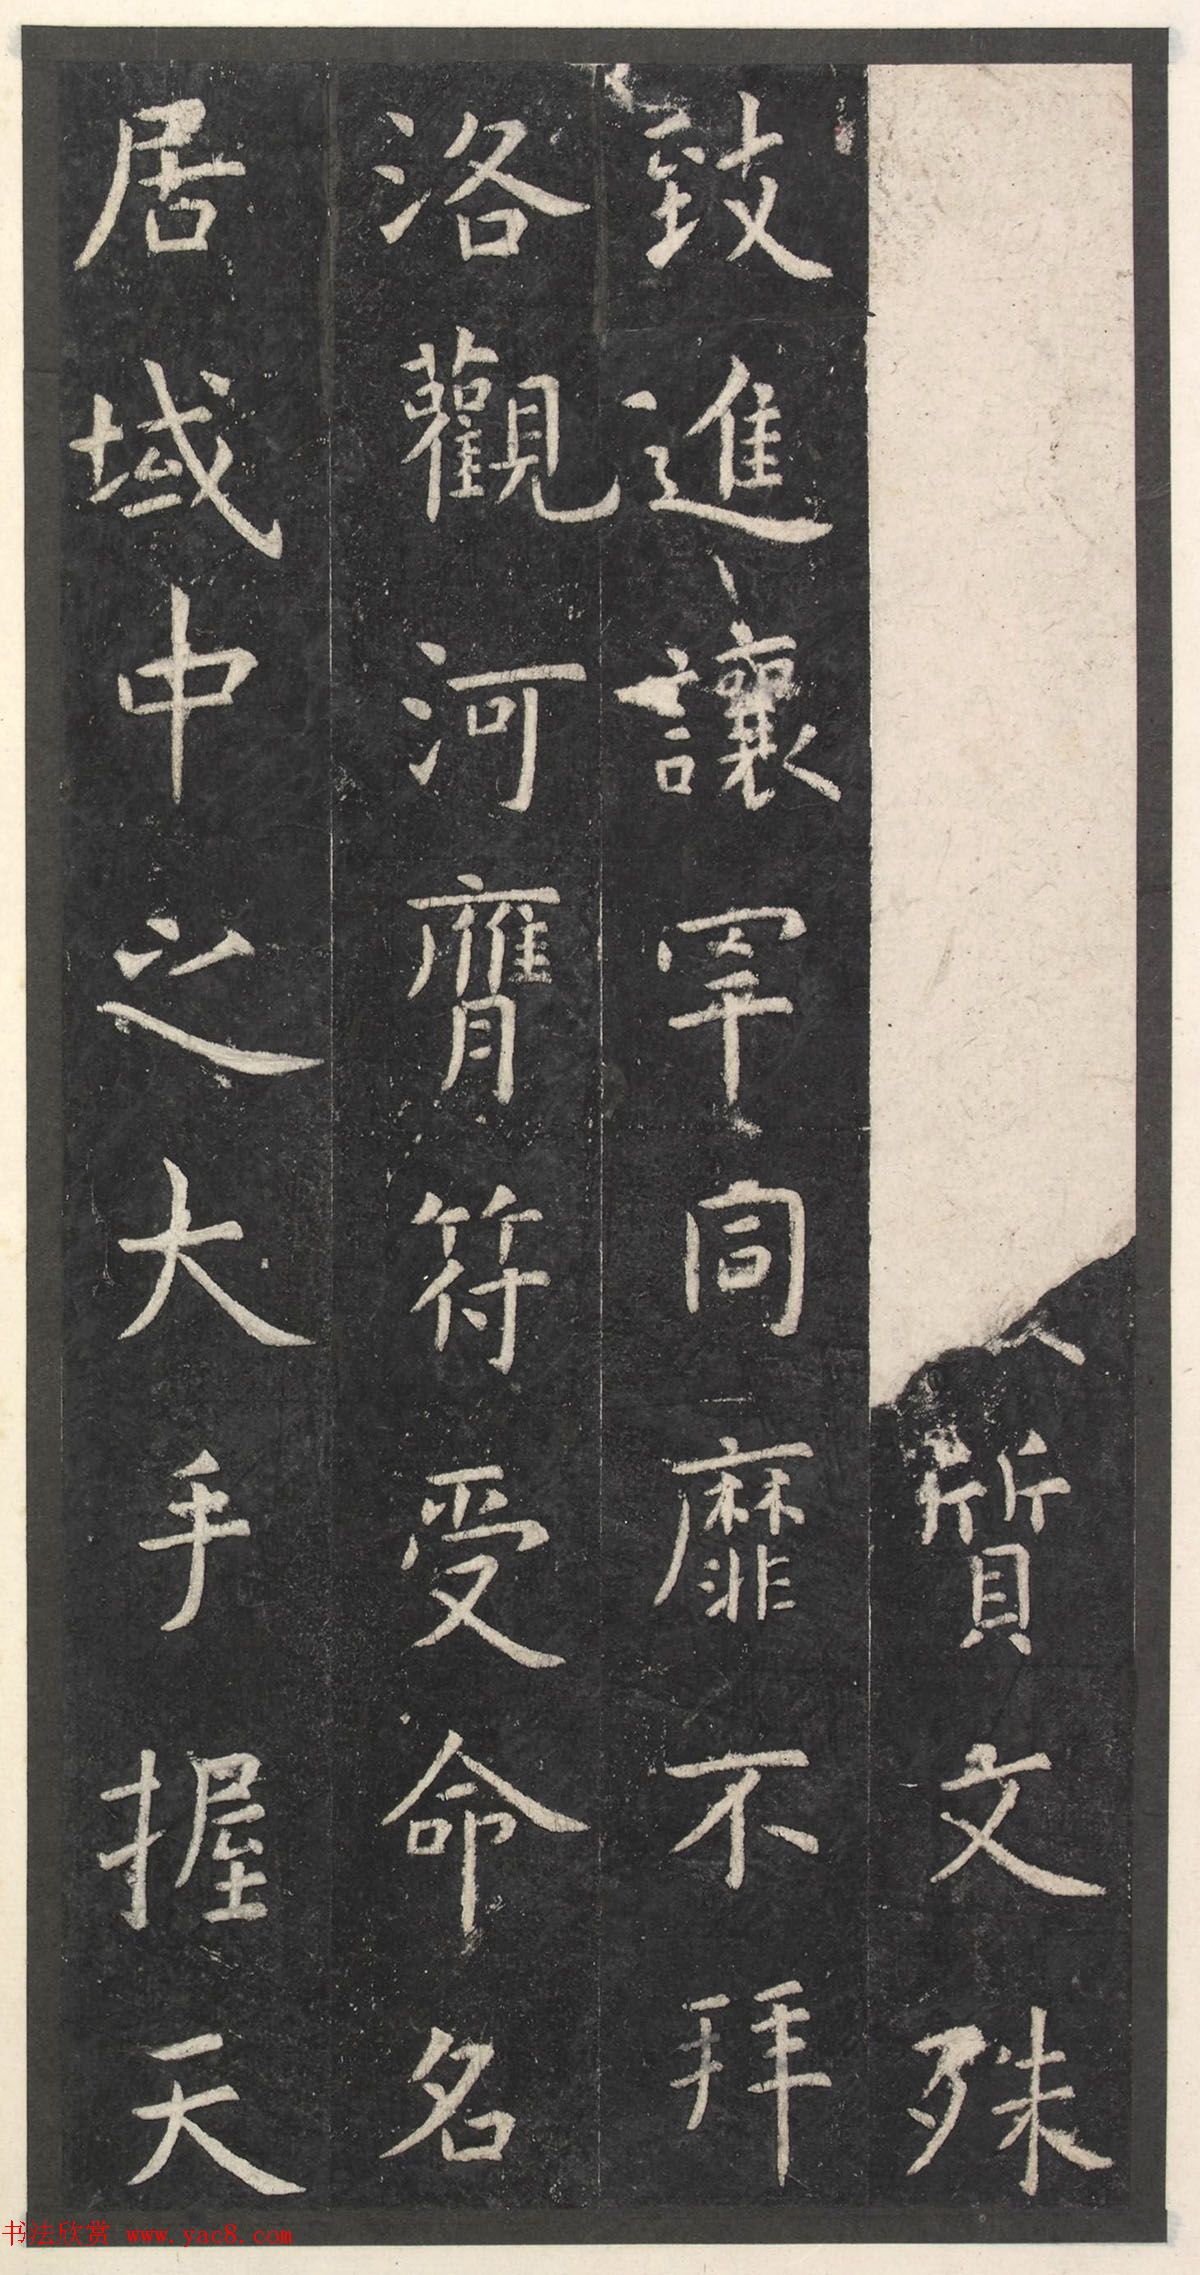 質文殊
致進讓罕同靡不拜
洛觀河膺符受命名
居域中之大手握天
书法欣赏 www.yac8.com